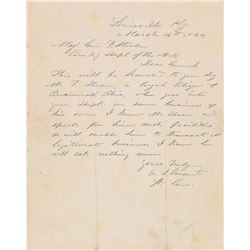 Louisville Ky.
March 14th, 1864
Maj. Gen. F. Steele
Comdg Dept of the Ark
Dear General
This will be handed to you by
Mr. T. a loyal Citizen of
Cincinnati Ohio, who goes into
your Dept. on some business of
his own. I know Mr. and
for him such facilities
as will enable him to transact all
legitimate business. I know he
will ask nothing more.
Yours truly
Gen.